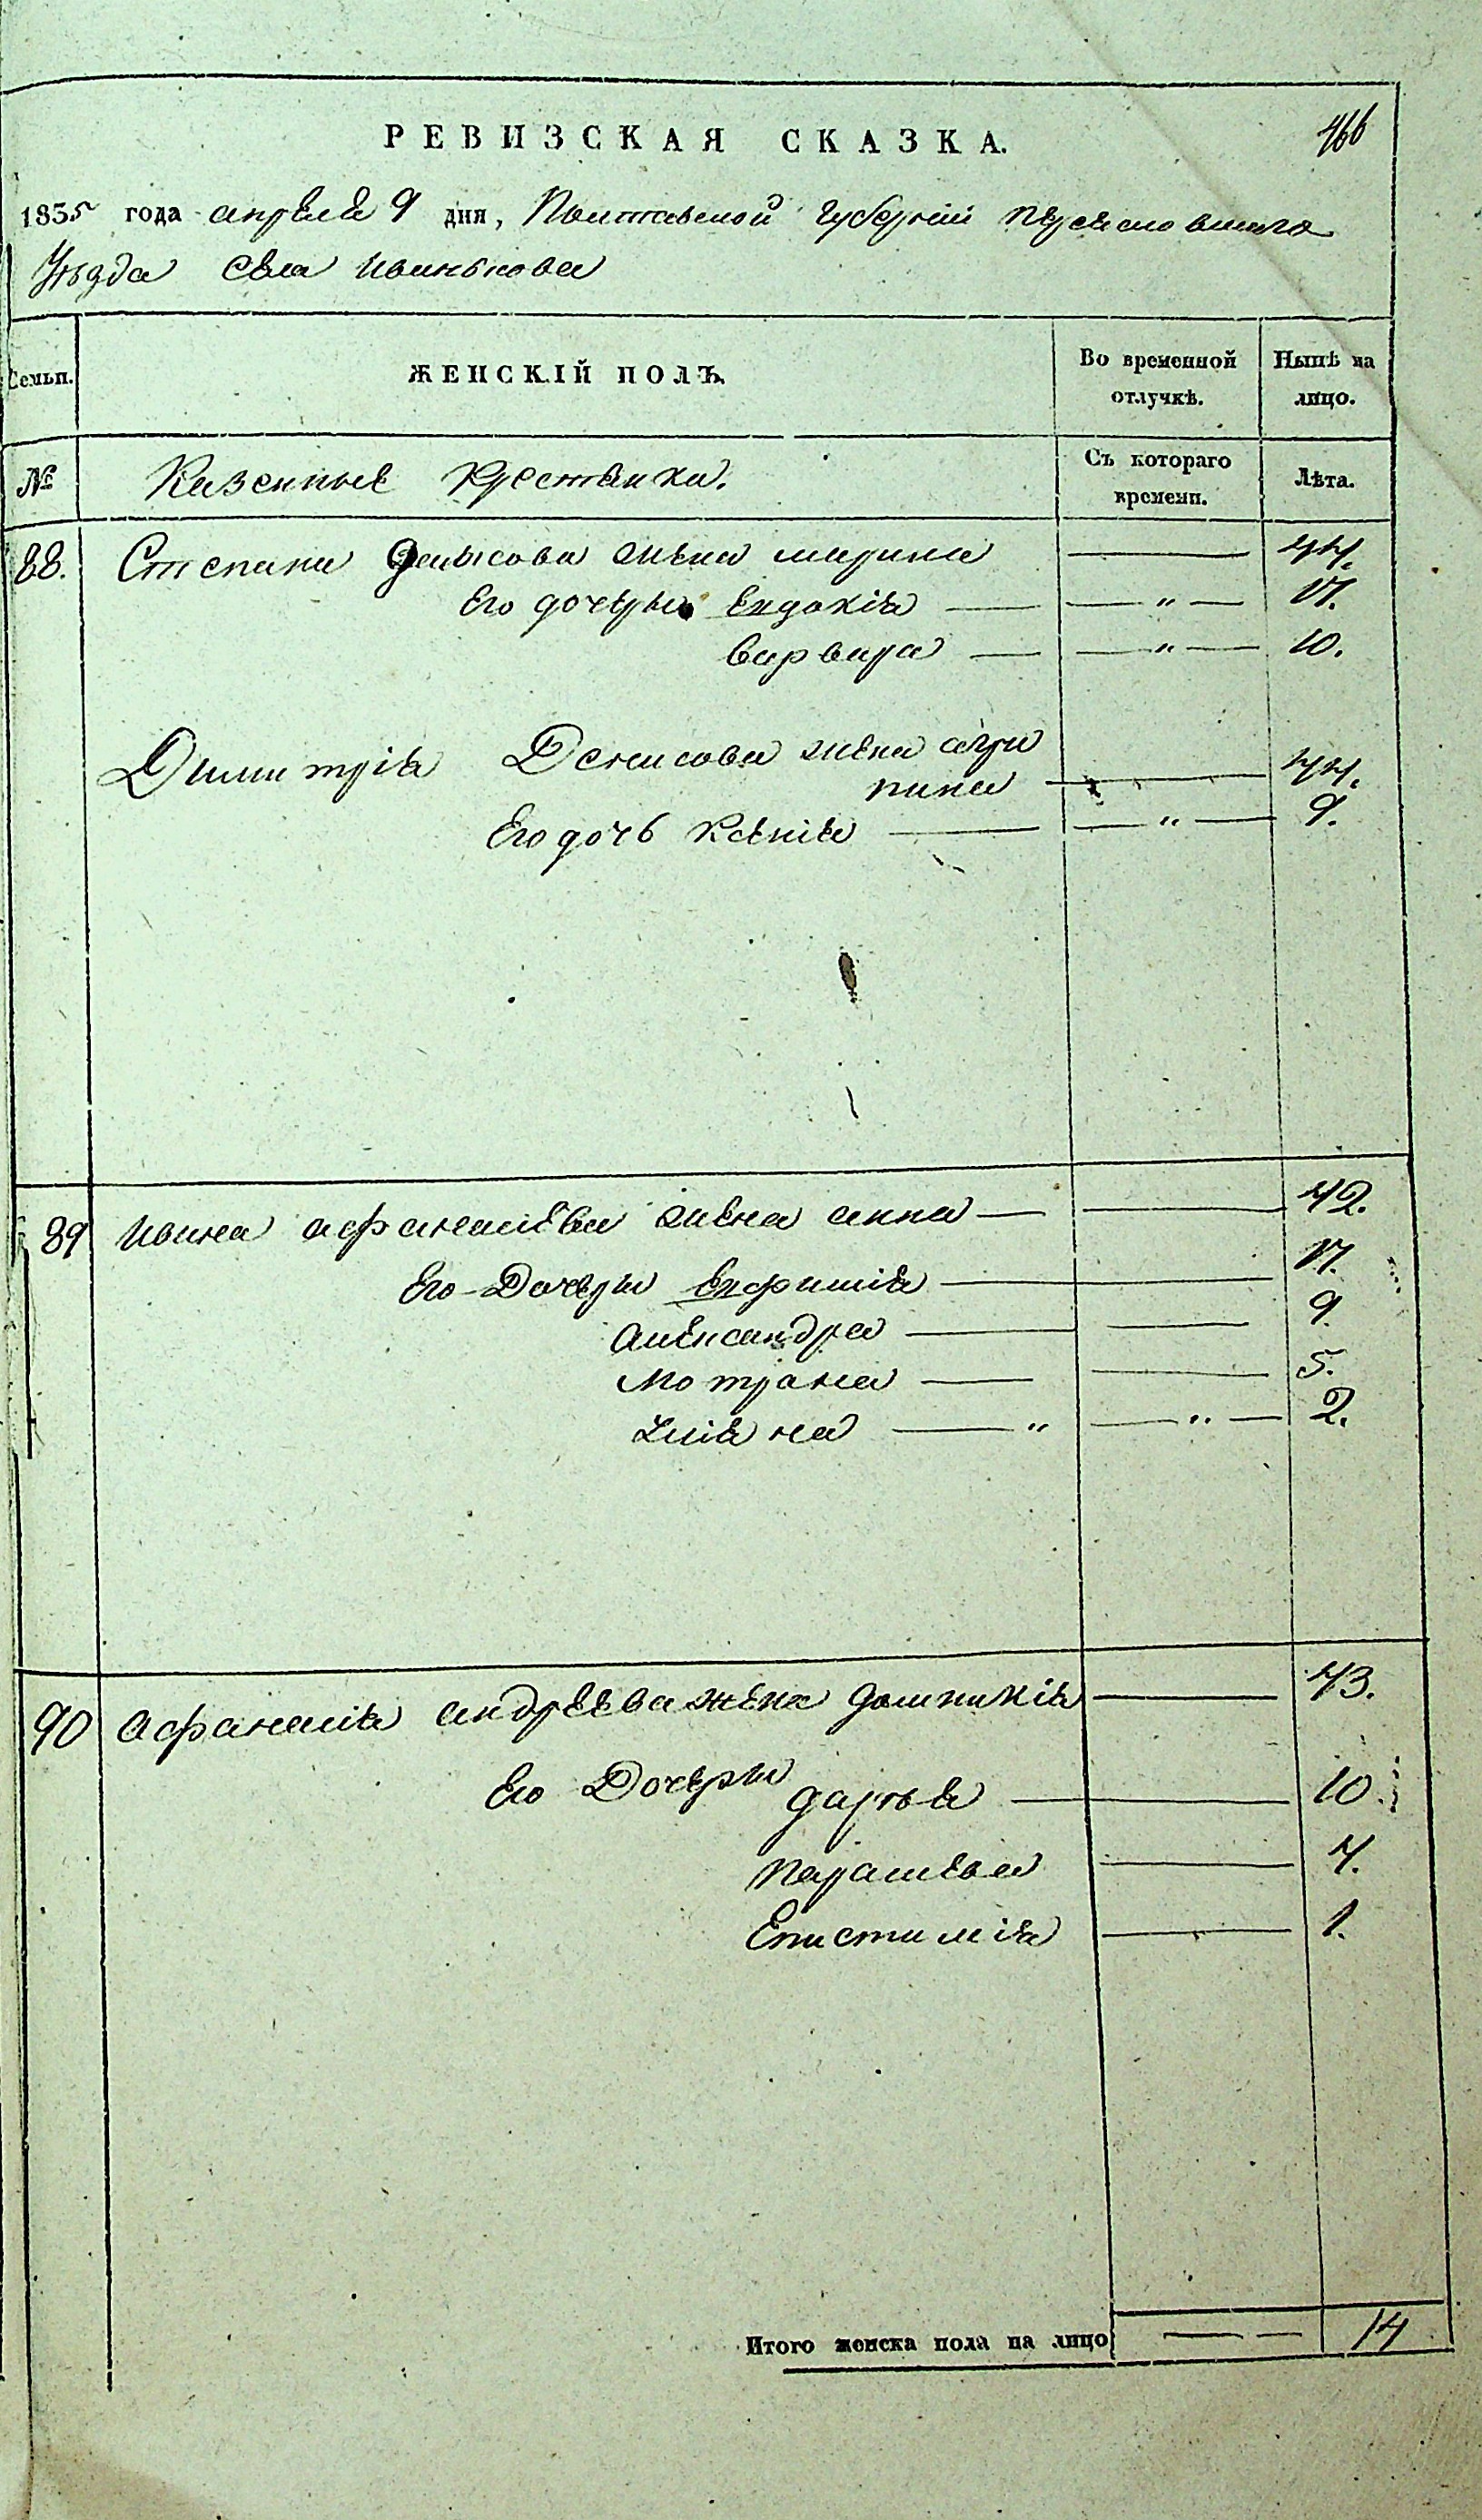 РЕВИЗСКАЯ СКАЗКА.
466
1835 года апреля 9 дня, Полтавской губернiи переясловскаго
Уѣзда села Иванькова
Семьи.
ЖЕНСКIЙ ПОЛЪ.
Во временной отлучкѣ.
Нынѣ на лицо.
№
Казенные крестьянки.
Съ котораго времени.
Лѣта.
88. Степана Денисова жена марина — 44.
Его дочери Евдокiя — " — 17.
варвара — " — 10.
Димитрiя Денисова жена агри
пина — 44.
Его дочь Ксенiя — " — 9.
89 Ивана афанасиева жена анна — 42.
Его Дочери Евфимiя — 17.
Александра — 9
Мотрона — 5.
Улiяна — " — " — 2.
90 Афанасiя андреева жена домникiя — 43.
Его Дочери дарья — 10.
Парасковея — 4.
Епистимiя — 1.
Итого женска пола на лицо — — 14